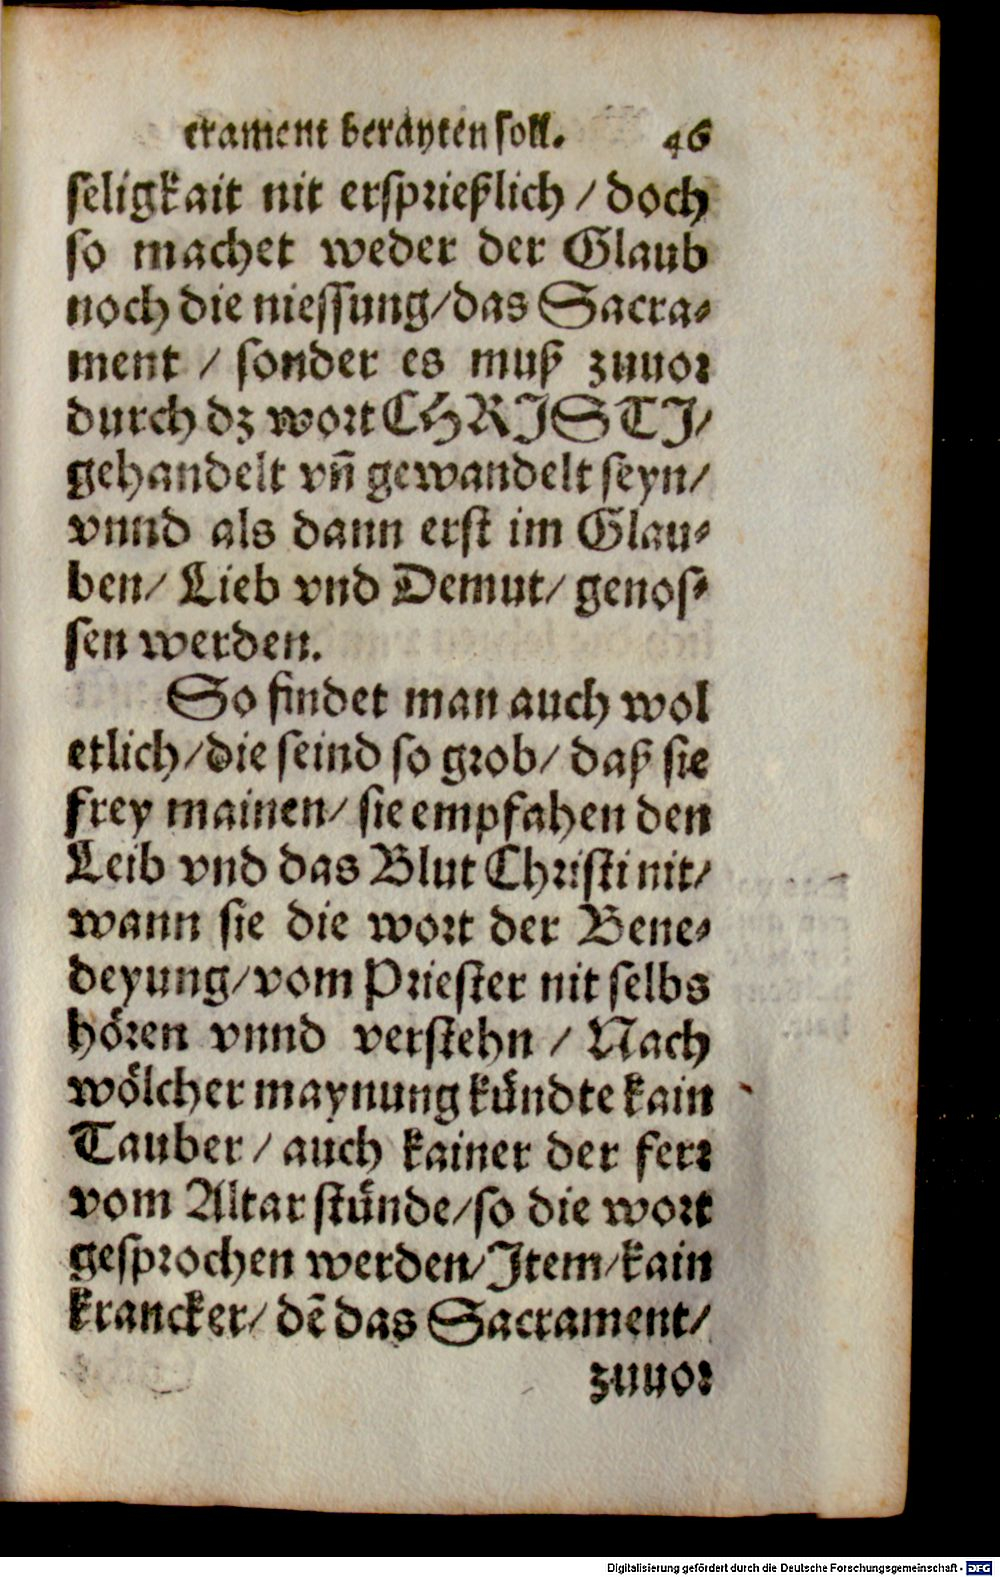 crament berayten soll. 46
seligkait nit ersprießlich / doch
so machet weder der Glaub
noch die niessung/das Sacra-
ment / sonder es muß zuuor
durch dz wort CHRISTI/
gehandelt vñ gewandelt seyn/
vnnd als dann erst im Glau-
ben/ Lieb vnd Demut/ genos-
sen werden.
So findet man auch wol
etlich/die seind so grob/ daß sie
frey mainen/ sie empfahen den
Leib vnd das Blut Christi nit/
wann sie die wort der Bene-
deyung/vom Priester nit selbs
hören vnnd verstehn / Nach
wölcher maynung kündte kain
Tauber / auch kainer der ferr
vom Altar stünde/so die wort
gesprochen werden/Item/kain
krancker/ dē das Sacrament/
zuuor
Digitalisierung gefördert durch die Deutsche Forschungsgemeinschaft - DFG